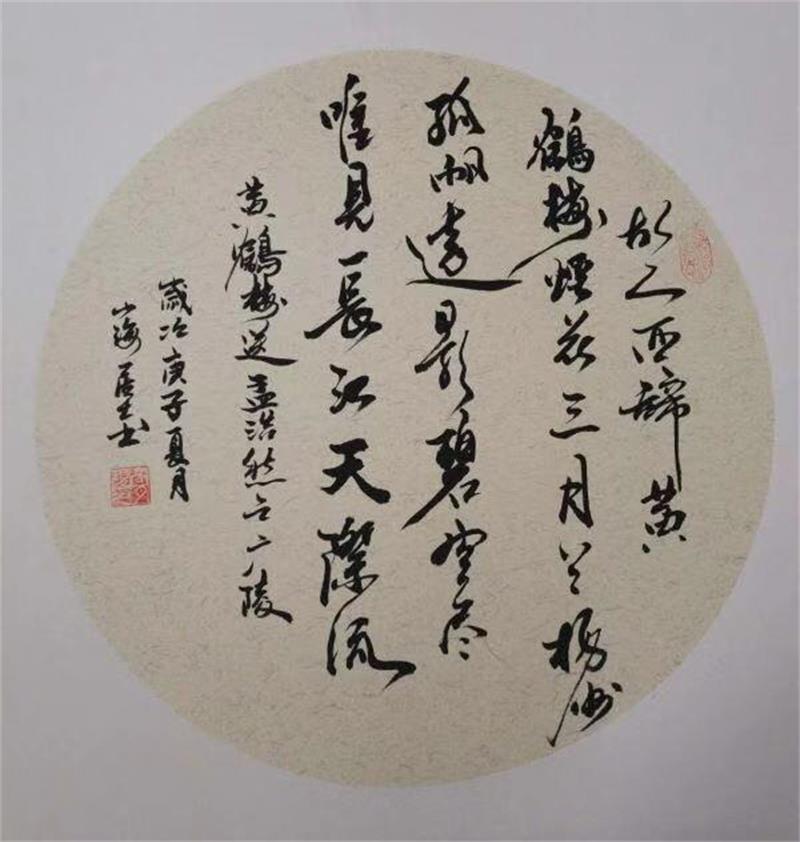 故人西辭黄
鶴樓煙花三月下揚州
孤帆遠影碧空尽
唯見長江天際流
黄鶴樓送孟浩然之广陵
歲次庚子夏月
山海居士书